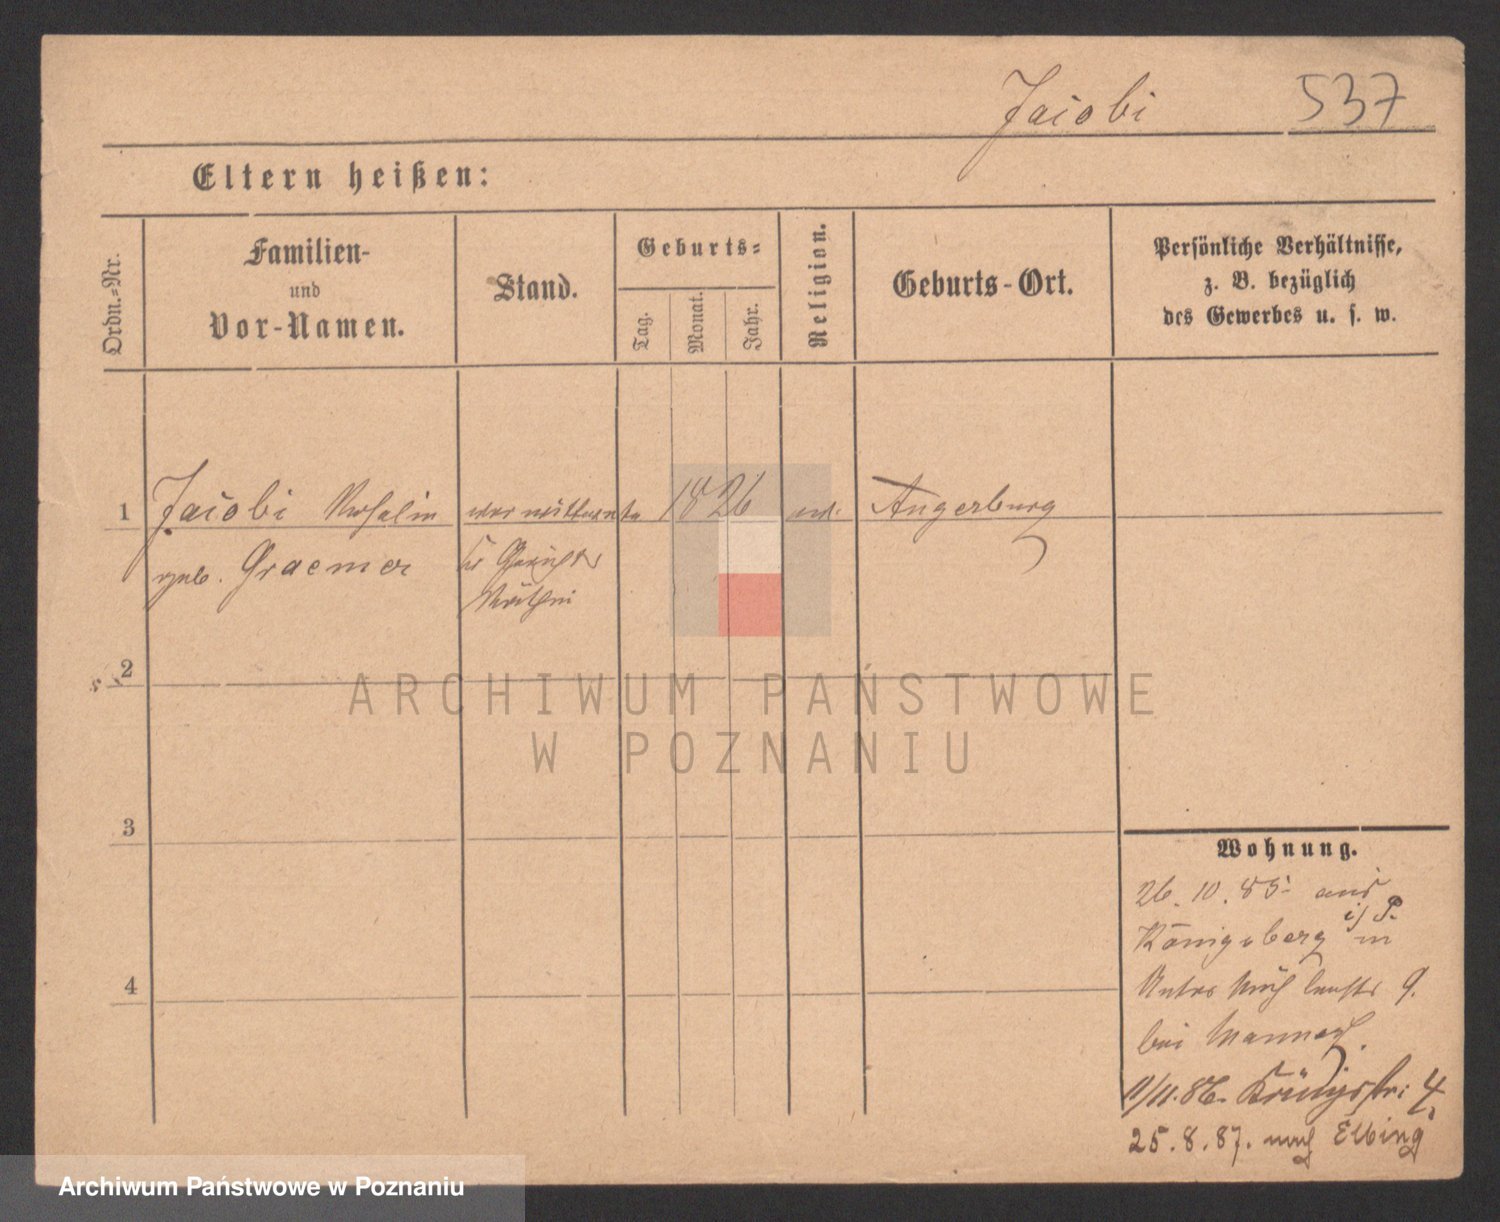 Jacobi 537
Eltern heißen:
Ordn.=Nr.
Familien-
und
Vor-Namen.
Stand.
Geburts=
Tag.
Monat.
Jahr.
Religion.
Geburts-Ort.
Persönliche Verhältnisse,
z. B. bezüglich
des Gewerbes u. s. w.
1 Jacobi Rosalin verwittwete 1826 Angerburg
geb. Graemer
Räthin
2
3
4
Wohnung.
26. 10. 85 aus
Königsberg i/P. in
9.
bei
11/11. 86. 4.
25. 8. 87. nach Elbing
ARCHIWUM PAŃSTWOWE
W POZNANIU
Archiwum Państwowe w Poznaniu